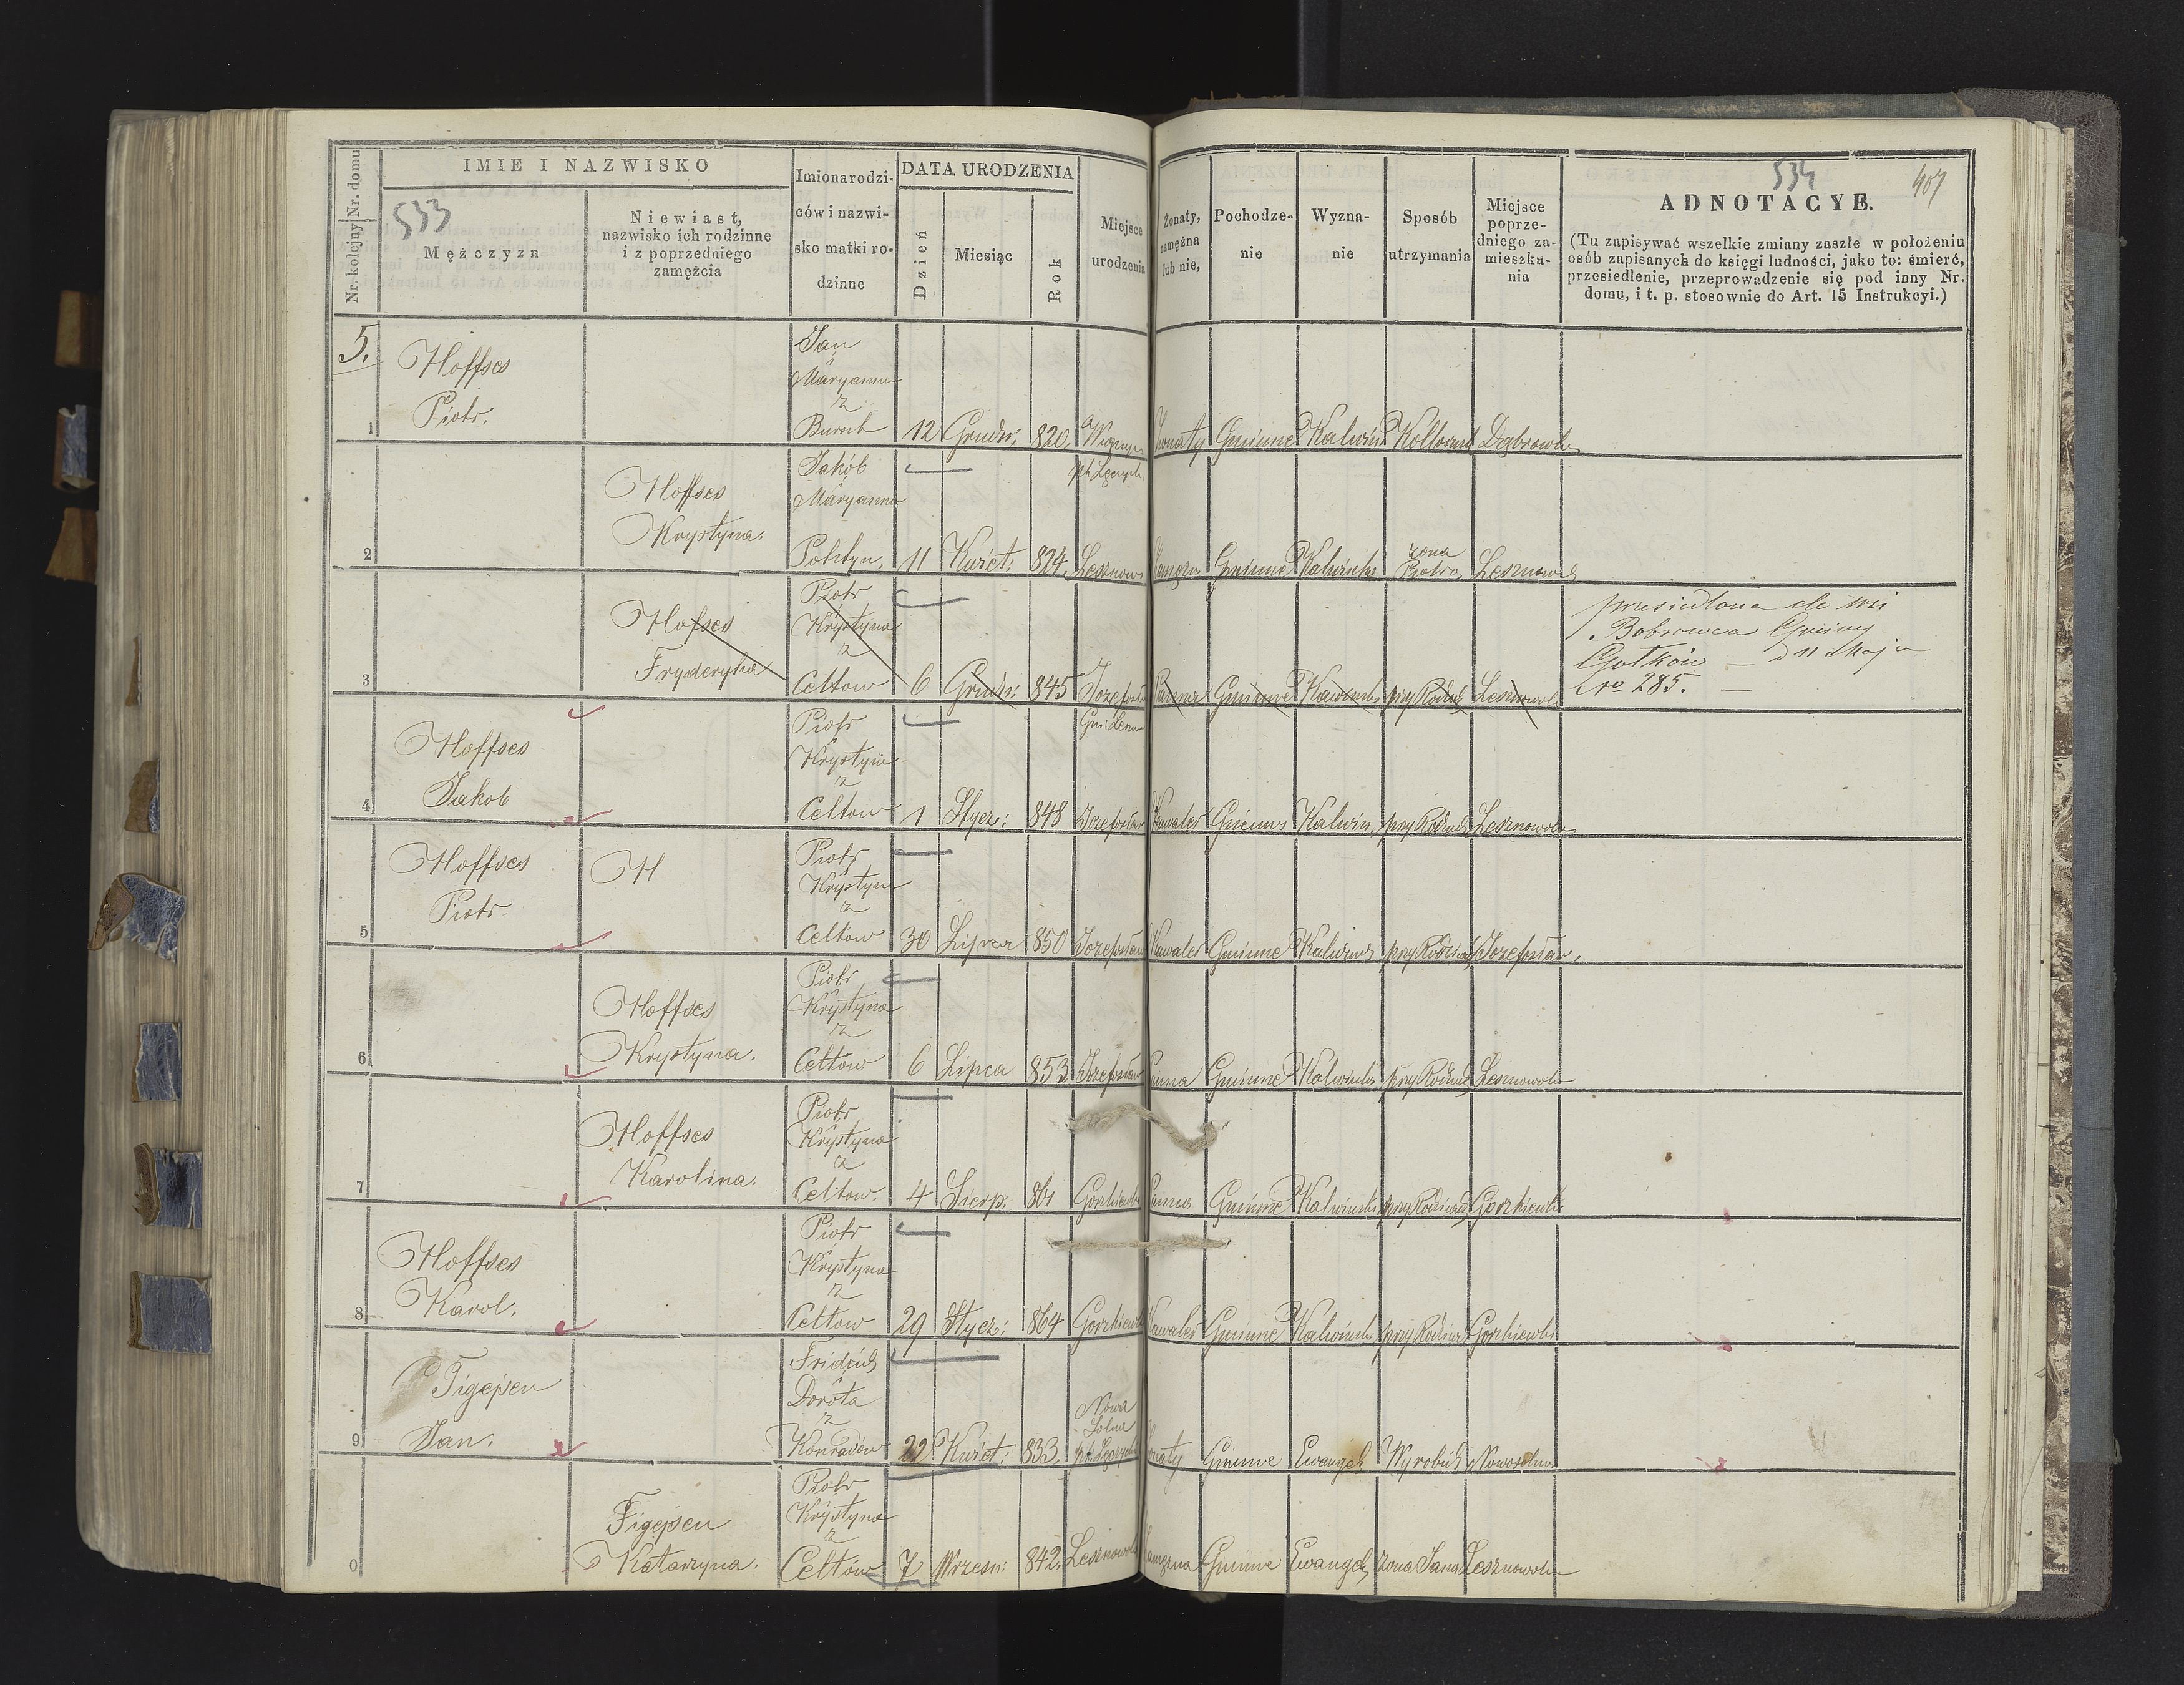 533
534
407
Nr. kolejny Nr. domu
IMIE I NAZWISKO
Mężczyzn
Niewiast,
nazwisko ich rodzinne
i z poprzedniego
zamężcia
Imiona rodzi-
ców i nazwi-
sko matki ro-
dzinne
DATA URODZENIA
Dzień
Miesiąc
Rok
Miejsce
urodzenia
Żonaty,
zamężna
lub nie,
Pochodze-
nie
Wyzna-
nie
Sposób
utrzymania
Miejsce
poprze-
dniego za-
mieszka-
nia
ADNOTACYE.
(Tu zapisywać wszelkie zmiany zaszłe w położeniu
osób zapisanych do księgi ludności, jako to: śmierć,
przesiedlenie, przeprowadzenie się pod inny Nr.
domu, i t. p. stosownie do Art. 15 Instrukcyi.)
5.
Hoffses
Piotr.
Jan
Maryanna
z
1 12 Grudn: 820, Żonaty Gminne Kalwin
Hoffses
Krystyna.
Jakób
Maryanna
2 11 Kwiet: 824, Lesznow Gminne Kalwińs żona Piotra Lesznowol
Hofses
Fryderyka
Piotr
Krystyna
z
Celtow
3 6 Grudn: 845 Jozefosław Panna Gminne przy Rodzic Lesznowoli
przesiedlona do wsi
Bobrowca Gminy
d 11 Maja
Nro 285.
Hoffses
Jakob
Piotr
Krystyna
z
Celtow
4 1 Stycz: 848 Jozefosław Kawaler Gminne Kalwin przy Rodzic Lesznowola
Hoffses H
Piotr
Piotr
Krystyna
z
Celtow
5 30 Lipca 850 Jozefosław Kawaler Gminne Kalwińs przy Rodzic Jozefosław.
Hoffses
Krystyna.
Piotr
Krystyna
z
Celtow
6 6 Lipca 853 Jozefosław Panna Gminne Kalwińs przy Rodzic Lesznowola
Hoffses
Karolina.
Piotr
Krystyna
z
Celtow.
7 4 Sierp. 861 Gorzkiewki Panna Gminne Kalwińs przy Rodzic Gorzkiewki
Hoffses
Karol.
Piotr
Krystyna
z
Celtow
8 29 Stycz: 864 Gorzkiewki Kawaler Gminne Kalwińs przy Rodzic Gorzkiewki
Figejsen
Jan.
Fridrich
Dorota
z
Konradów
Nowa
Solna
9 22 Kwiet: 833. Żonaty Gminne Ewangel Wyrobnik Nowosolna
Figejsen
Katarzyna.
Piotr
Krystyna
z
Celtów
0 7 Wrzesn: 842. Lesznowola Zamężna Gminne Ewangel, żona Jana Lesznowola